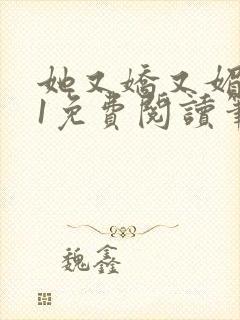 她又嬌又媚
1免費閱讀
魏鑫